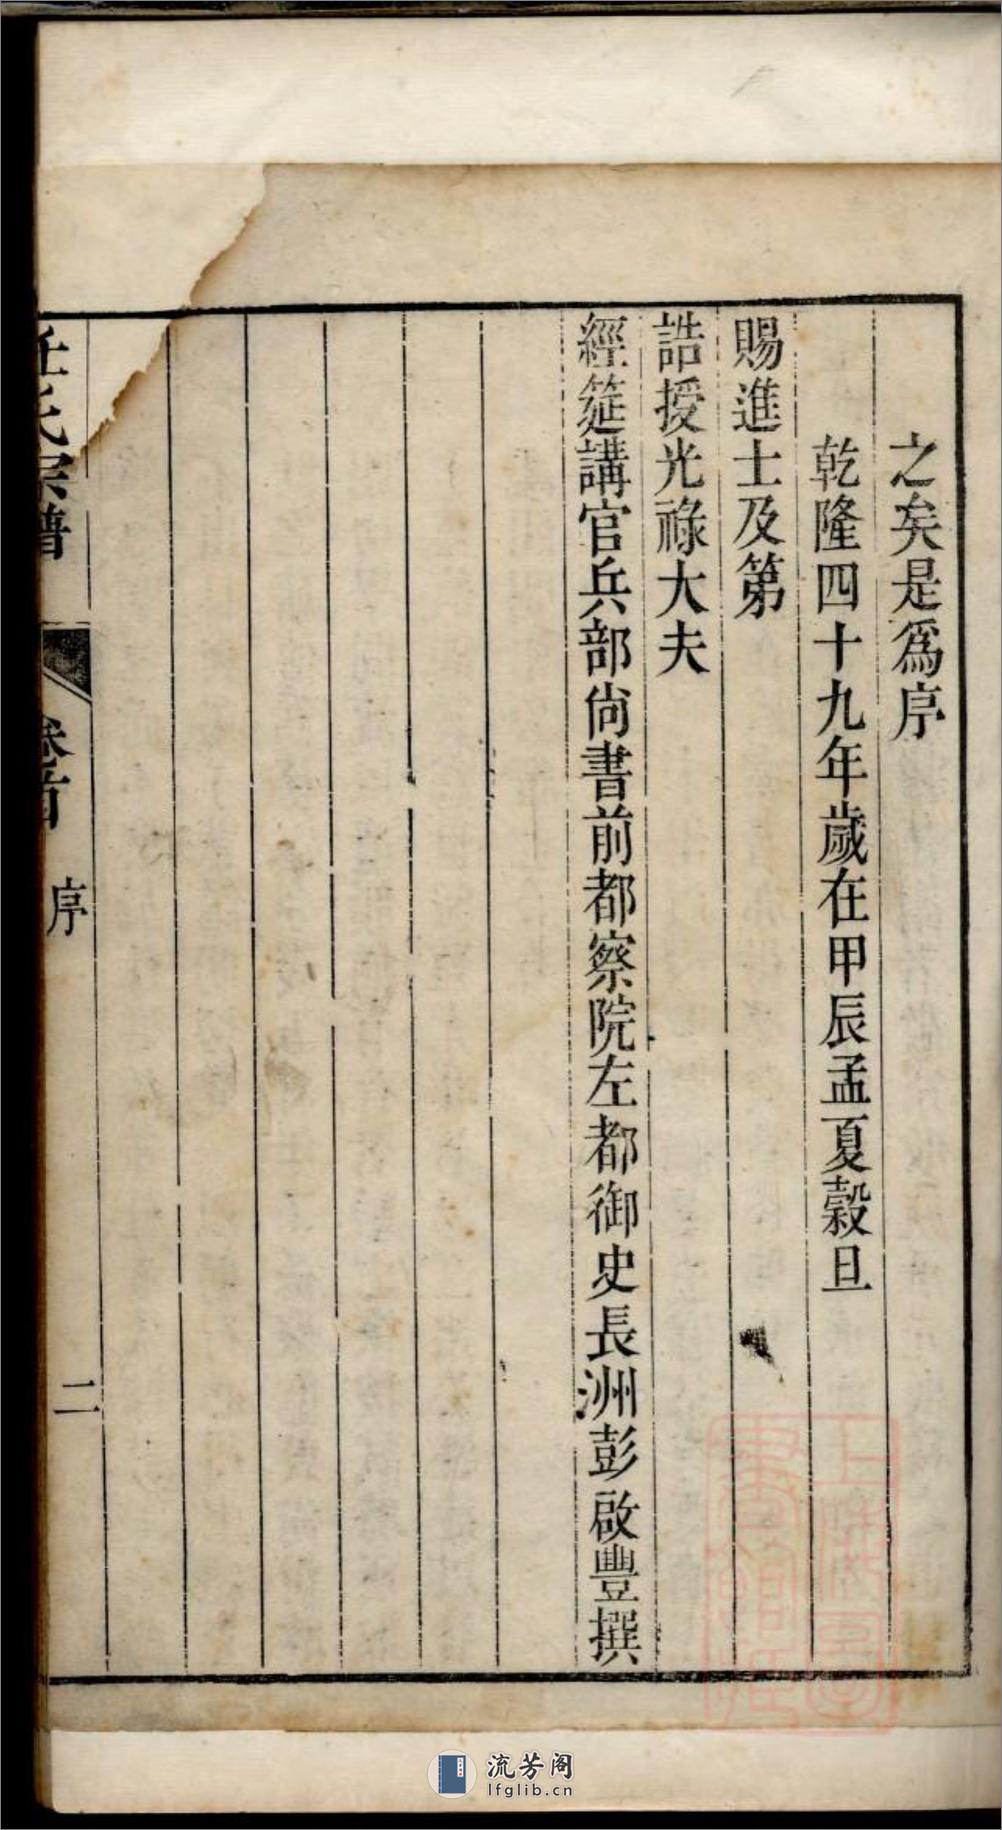 之矣是爲序
乾隆四十九年歲在甲辰孟夏穀旦
賜進士及第
誥授光祿大夫
經筵講官兵部尙書前都察院左都御史長洲彭啟豐撰
任氏宗譜
卷首
序
二
上海圖書館藏
流芳阁
lfglib.cn